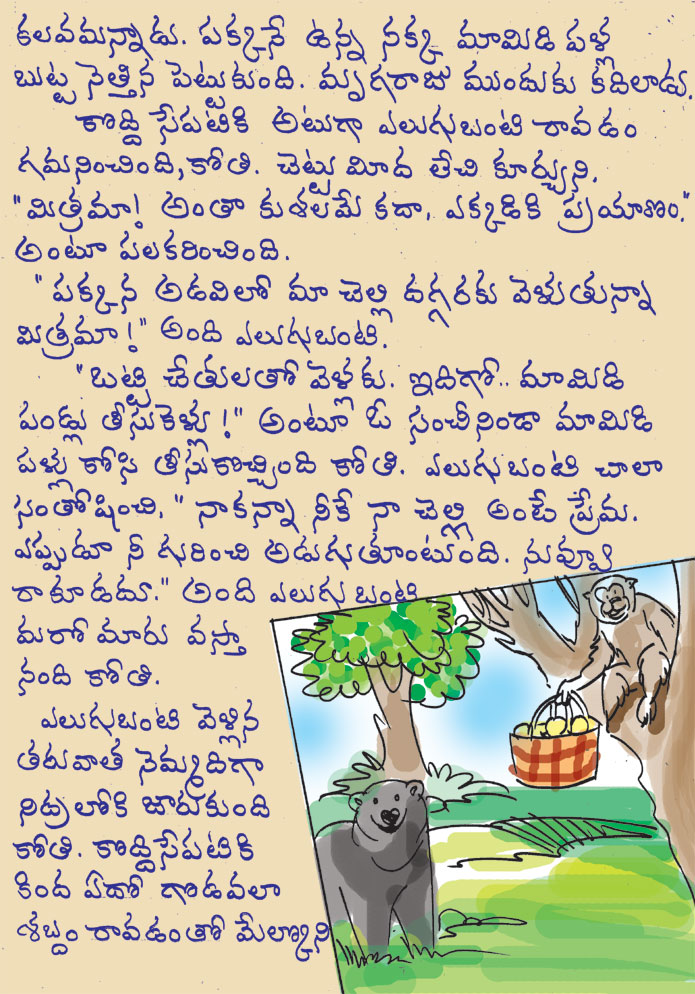 కలవమన్నాడు. పక్కనే ఉన్న నక్క మామిడి పళ్ల
బుట్ట నెత్తిన పెట్టుకుంది. మృగరాజు ముందుకు కదిలాడు.
కొద్ది సేపటికి అటుగా ఎలుగుబంటి రావడం
గమనించింది,కోతి. చెట్టు మీద లేచి కూర్చుని,
"మిత్రమా! అంతా కుశలమే కదా, ఎక్కడికి ప్రయాణం."
అంటూ పలకరించింది.
"పక్కన అడవిలో మా చెల్లి దగ్గరకు వెళుతున్నా
మిత్రమా!" అంది ఎలుగుబంటి.
"ఒట్టి చేతులతో వెళ్లకు. ఇదిగో.. మామిడి
పండ్లు తీసుకెళ్లు!" అంటూ ఓ సంచీనిండా మామిడి
పళ్లు కోసి తీసుకొచ్చింది కోతి. ఎలుగుబంటి చాలా
సంతోషించి, "నాకన్నా నీకే నా చెల్లి అంటే ప్రేమ.
ఎప్పుడూ నీ గురించి అడుగుతూంటుంది. నువ్వూ
రాకూడదూ." అంది ఎలుగుబంటి
మరో మారు వస్తా
నంది కోతి.
ఎలుగుబంటి వెళ్లిన
తరువాత నెమ్మదిగా
నిద్రలోకి జారుకుంది
కోతి. కొద్దిసేపటికి
కింద ఏదో గొడవలా
శబ్దం రావడంతో మేల్కొని